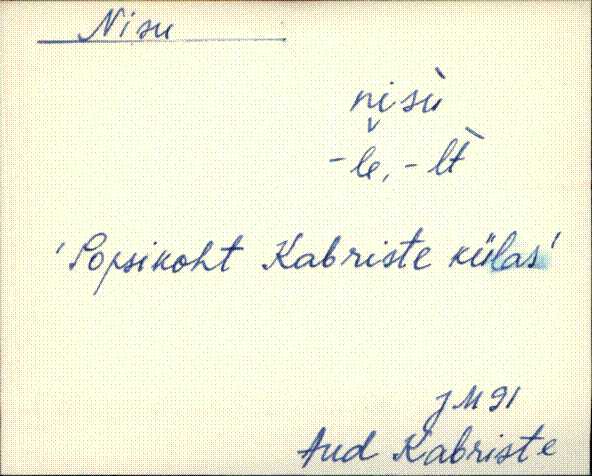 Nisu
nisù
-le, -lt̀
'Popsikoht Kabriste külas'
JM 91
Aud Kabriste